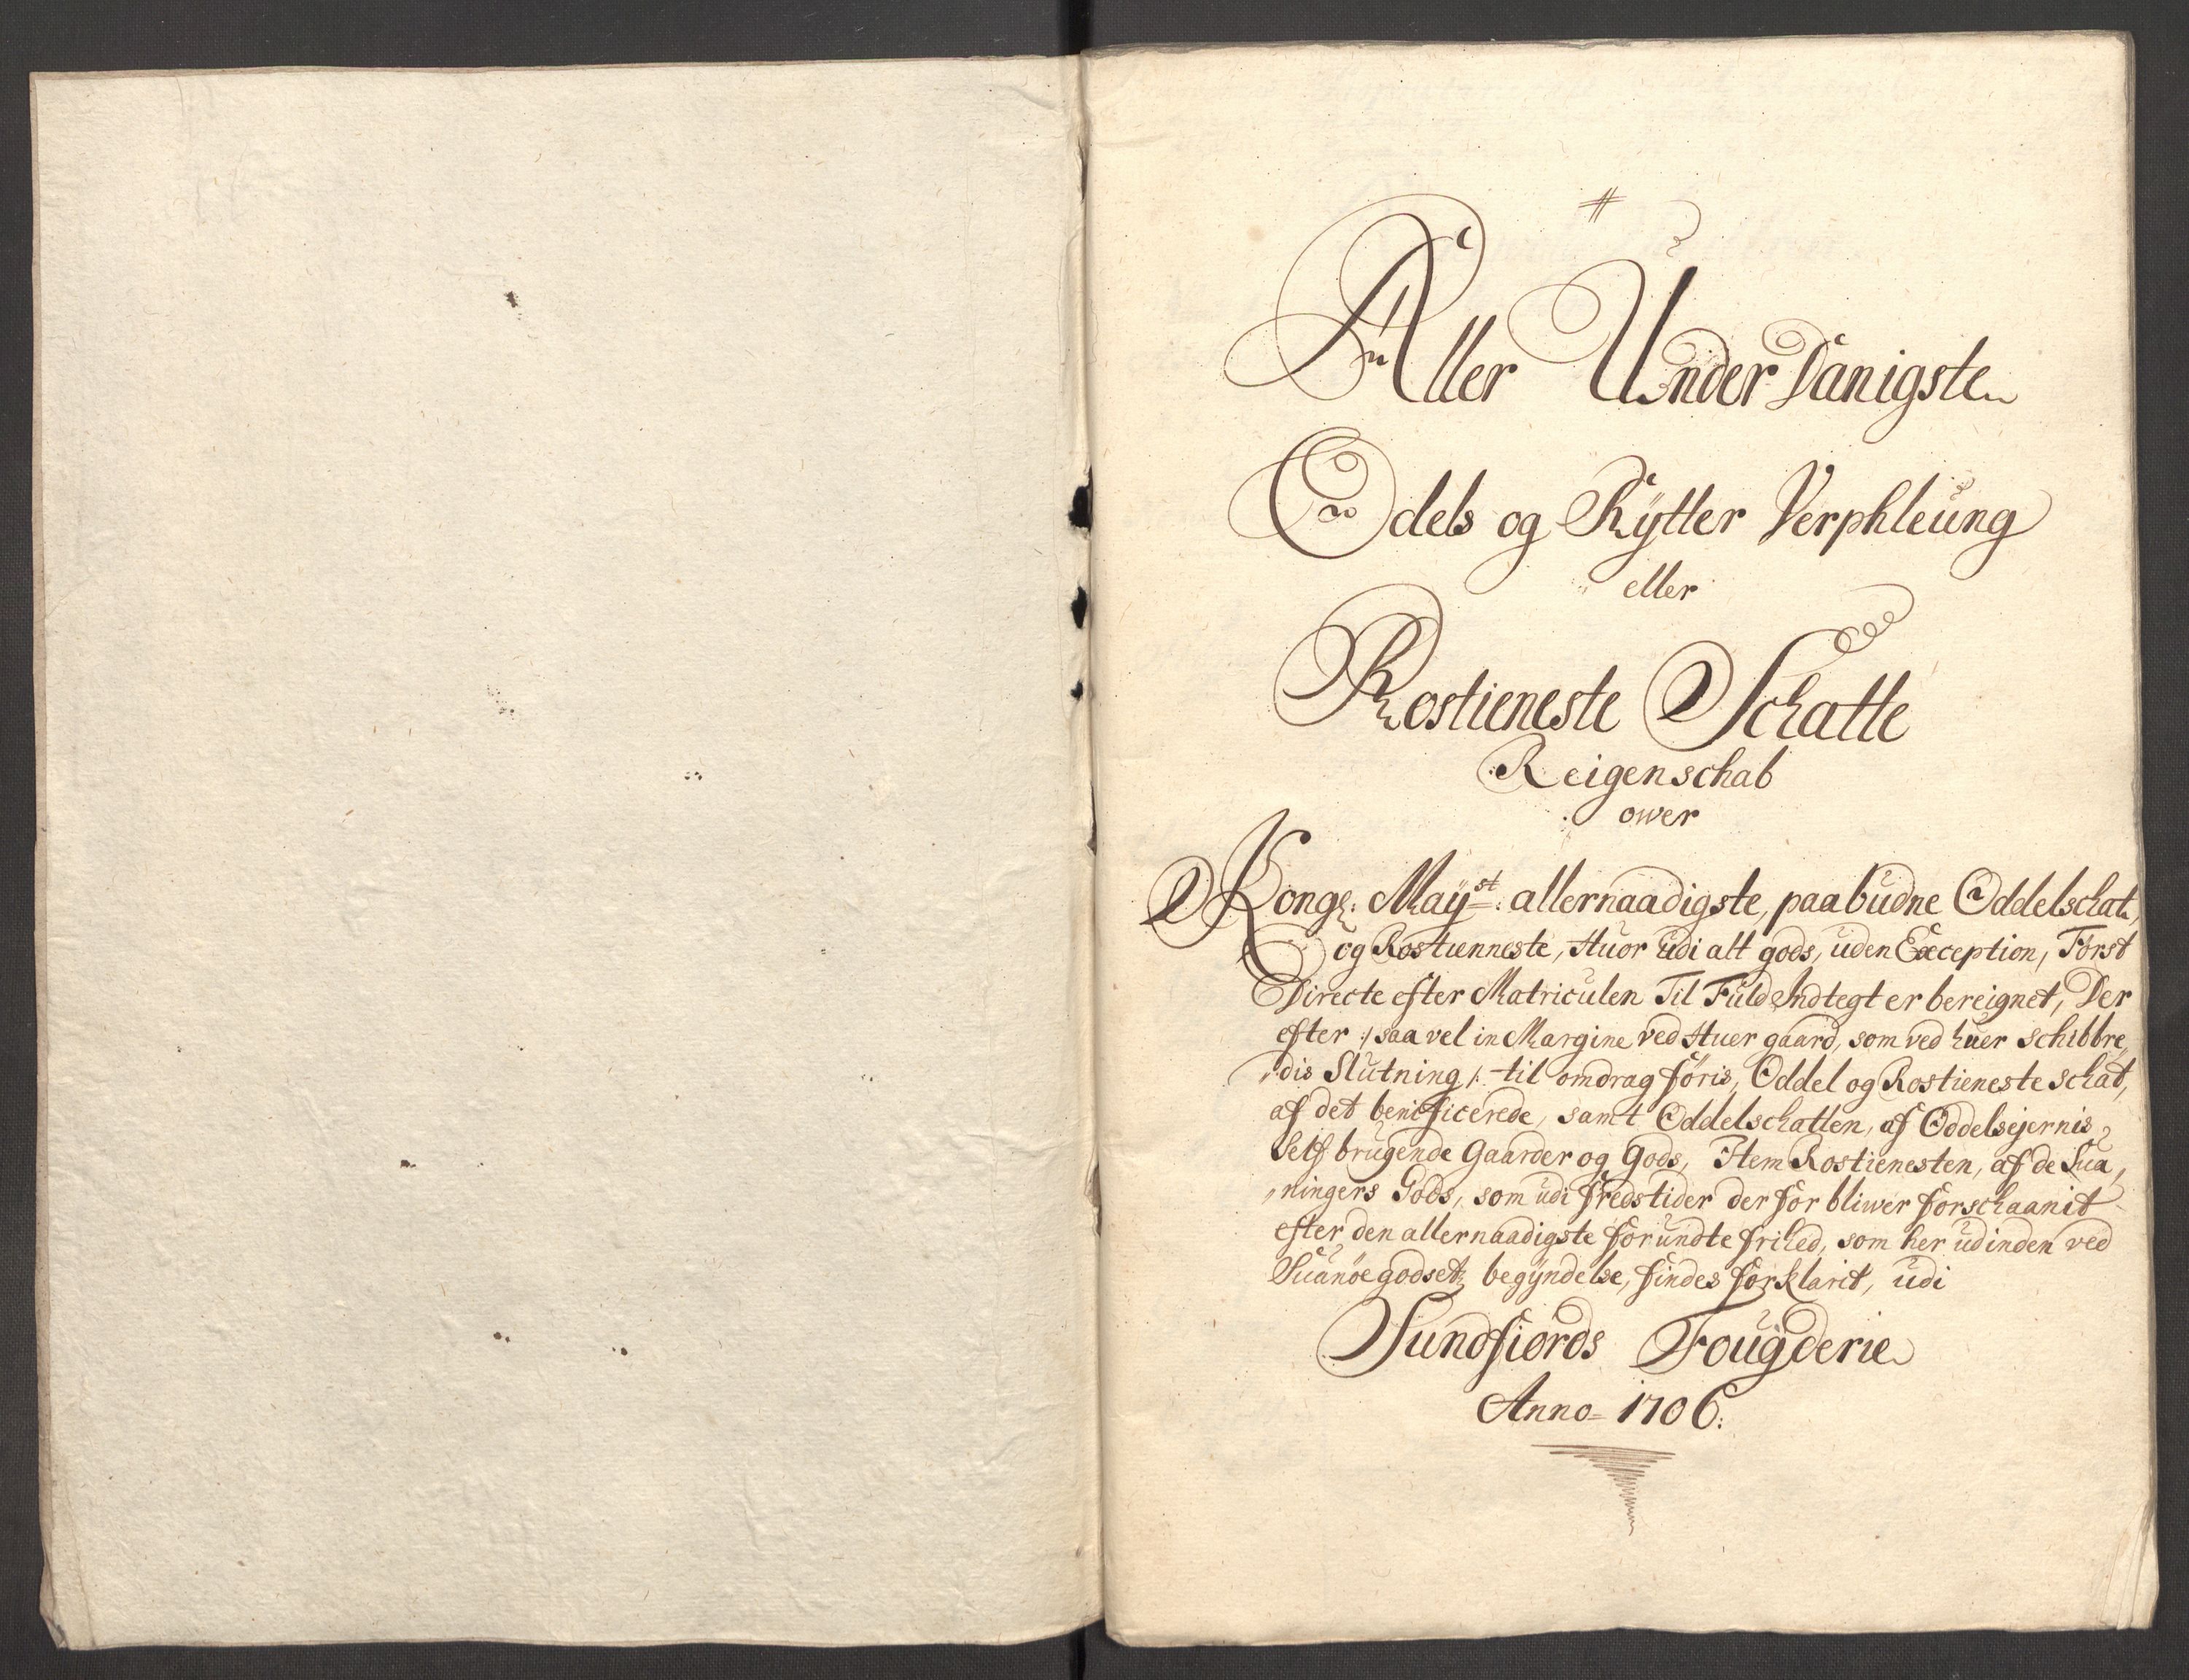 Aller Under Danigste
Odels og Rÿtter Verphleung
eller
Rostieneste Schatte
Reigenschab
ower
Kongl: Maÿst: allernaadigste, paabudne Oddelschat,
og Rostienneste, Huor udi alt gods, uden Exception, Först
Directe efter Matriculen Til Fuld Indtegt er bereignet, Der
efter :/ saa vel in Margine ved Huer gaard, som ved huer schibbre,
,dis Slutning /: til omdrag föris, Oddel og Rostieneste schat,
af det benificerede, samt Oddelschatten, af Oddelsejernis
Self brugende Gaarder og Gods, Item Rostienesten, af de Sua,
,ningers Gods, som udi fredstider der for bliwer forschaanit
efter den allernaadigste forundte frihed, som her udinden ved
Suanöegodsetz begÿndelse, findes forklarit, udi
Sundfiords Fougderie
Anno= 1706: